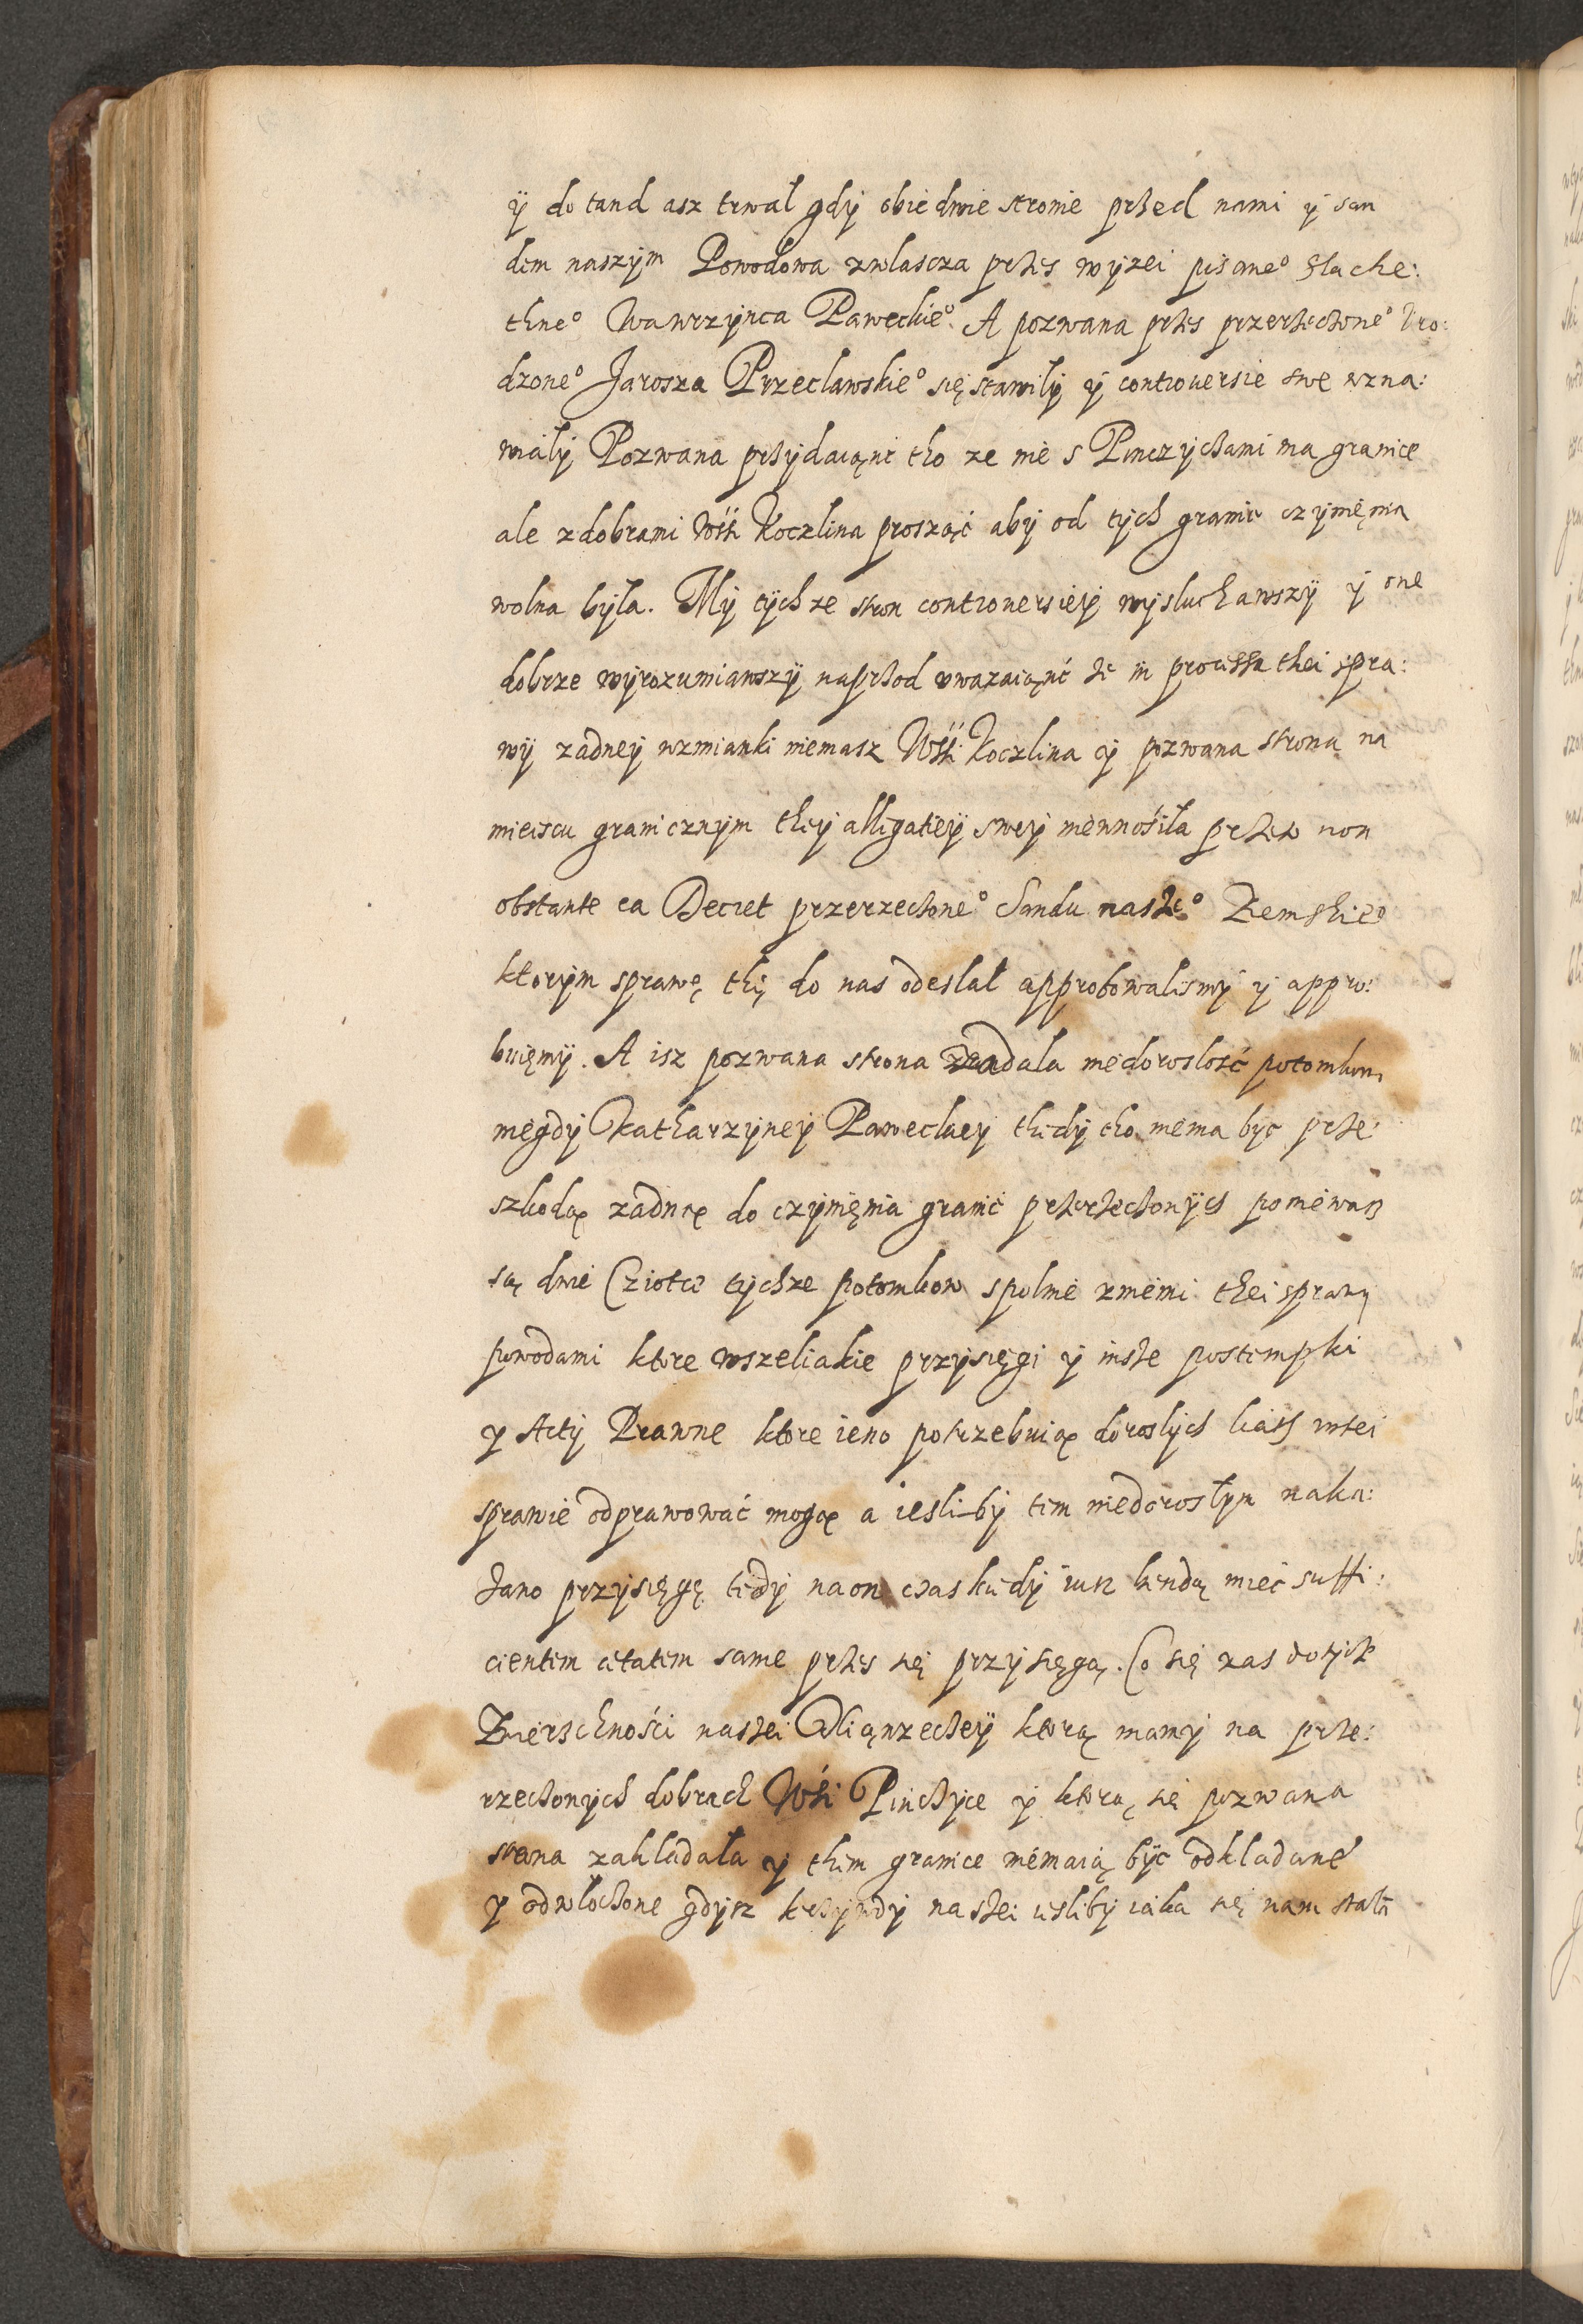 ÿ do tand asz trwał gdÿ obie dwie stronie przed nami ÿ san
dem naszÿm Powodowa zwlascza przes wÿzei pisane° Slache:
thne° Wawrzÿnca Paweckie°. A pozwana przes przerzeczone° Uro:
dzone° Jarosza Przeclawskie° się stawilÿ ÿ controuersie swe wzna:
wiálÿ Pozwana przÿdaiąnc tho ze nie s Pinczÿczami ma granice
ale z dobrami Wśi Koczlina proszącz abÿ od tÿch granic czÿnięnia
wolna bÿla. Mÿ tÿchze stron controuersieÿ wÿsluchawszÿ ÿ one
dobrze wÿrozumiawszÿ naprzod uwazaiąnć że in processu thei spra:
wÿ zadneÿ wzmianki niemasz Wśi Koczlina ÿ pozwana strona na
mieiscu granicznÿm theÿ alligatieÿ sweÿ niewnośiła przeto non
obstante ea Decret przerzeczone° Sandu nasze° Ziemskie°
ktorÿm sprawę thę do nas odeslał approbowalismÿ ÿ appro:
buięmÿ. A isz pozwana strona zadala niedoroslość potomkow
niegdÿ Katharzÿneÿ Paweckieÿ thedÿ tho niema bÿc prze:
szkodą zadną do czÿnięnia granić przerzeczonÿch poniewasz
są dwie Cziotce tÿchze potomkow spolnie z niemi thei sprawÿ
powodami ktore wszeliakie przÿsięgi ÿ insze postempki
ÿ Actÿ Prawne ktore ieno potrzebuią doroslÿch liath wtei
sprawie odprawować mogą a iesli-bÿ tem niedorosłÿm naka:
zano przÿsięgę tedÿ na on czas kiedÿ iusz bendą mieć suffi:
cientem aetatem same przes się przÿsięgą. Co się zas dotÿcze
Zwierzchności naszei Dliąnzeckieÿ ktorą mamÿ na prze:
rzeczonÿch dobrach Wśi Pinczÿce ÿ ktorą się pozwana
strona zakladała ÿ them granice niemaią bÿć odkladane
ÿ odwloczone gdÿsz krzÿwdÿ naszei iesliby iaka się nam stała